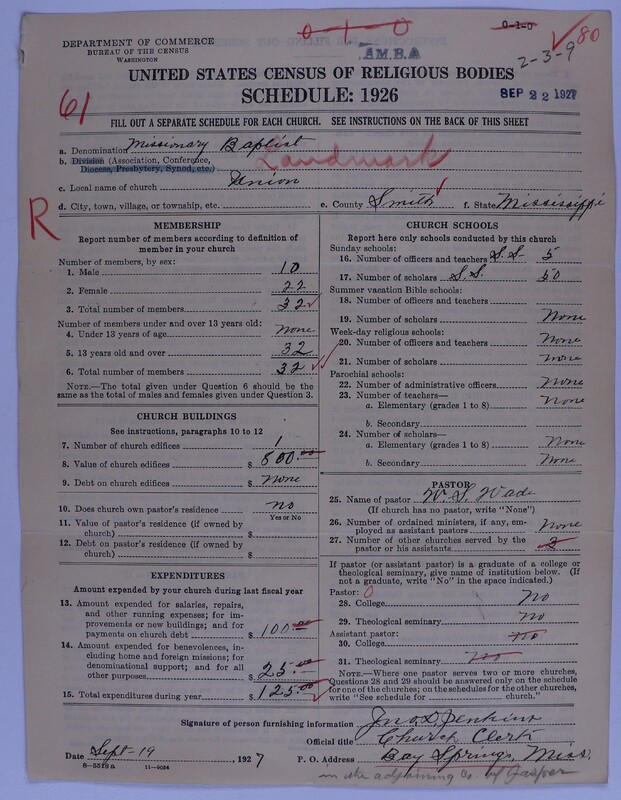 0-1-0
0-1-0
80
DEPARTMENT OF COMMERCE
BUREAU OF THE CENSUS
WASHINGTON
A.M.B.A
2-3-9
UNITED STATES CENSUS OF RELIGIOUS BODIES
SCHEDULE: 1926
SEP 22 1927
61
FILL OUT A SEPARATE SCHEDULE FOR EACH CHURCH. SEE INSTRUCTIONS ON THE BACK OF THIS SHEET
a. Denomination Missionary Baptist
b. Division (Association, Conference, Diocese, Presbytery, Synod, etc.) Landmark
c. Local name of church Union
d. City, town, village, or township, etc. e. County Smith f. State Mississippi
R
MEMBERSHIP
Report number of members according to definition of member in your church
Number of members, by sex:
1. Male 10
2. Female 22
3. Total number of members 32
Number of members under and over 13 years old:
4. Under 13 years of age None
5. 13 years old and over 32
6. Total number of members 32
NOTE.—The total given under Question 6 should be the same as the total of males and females given under Question 3.
CHURCH BUILDINGS
See instructions, paragraphs 10 to 12
7. Number of church edifices 1
8. Value of church edifices $ 800.00
9. Debt on church edifices $ None
10. Does church own pastor's residence No
Yes or No
11. Value of pastor's residence (if owned by church) $
12. Debt on pastor's residence (if owned by church) $
EXPENDITURES
Amount expended by your church during last fiscal year
13. Amount expended for salaries, repairs, and other running expenses; for improvements or new buildings; and for payments on church debt $ 100.00
14. Amount expended for benevolences, including home and foreign missions; for denominational support; and for all other purposes $ 25.00
15. Total expenditures during year $ 125.00
CHURCH SCHOOLS
Report here only schools conducted by this church
Sunday schools:
16. Number of officers and teachers S.S. 5
17. Number of scholars S.S. 50
Summer vacation Bible schools:
18. Number of officers and teachers
19. Number of scholars None
Week-day religious schools:
20. Number of officers and teachers None
21. Number of scholars None
Parochial schools:
22. Number of administrative officers None
23. Number of teachers—
a. Elementary (grades 1 to 8) None
b. Secondary
24. Number of scholars—
a. Elementary (grades 1 to 8) None
b. Secondary None
PASTOR
25. Name of pastor W. S. Wade
(If church has no pastor, write "None")
26. Number of ordained ministers, if any, employed as assistant pastors None
27. Number of other churches served by the pastor or his assistants 3
If pastor (or assistant pastor) is a graduate of a college or theological seminary, give name of institution below. (If not a graduate, write "No" in the space indicated.)
Pastor: 0
28. College No
29. Theological seminary No
Assistant pastor:
30. College No
31. Theological seminary No
NOTE.—Where one pastor serves two or more churches, Questions 28 and 29 should be answered only on the schedule for one of the churches; on the schedules for the other churches, write "See schedule for church."
Signature of person furnishing information Jno. D. Jenkins
Official title Church Clerk
Date Sept-19, 1927 P. O. Address Bay Springs, Miss.
8-5513a 11-9034
in the adjoining Co. of Jasper